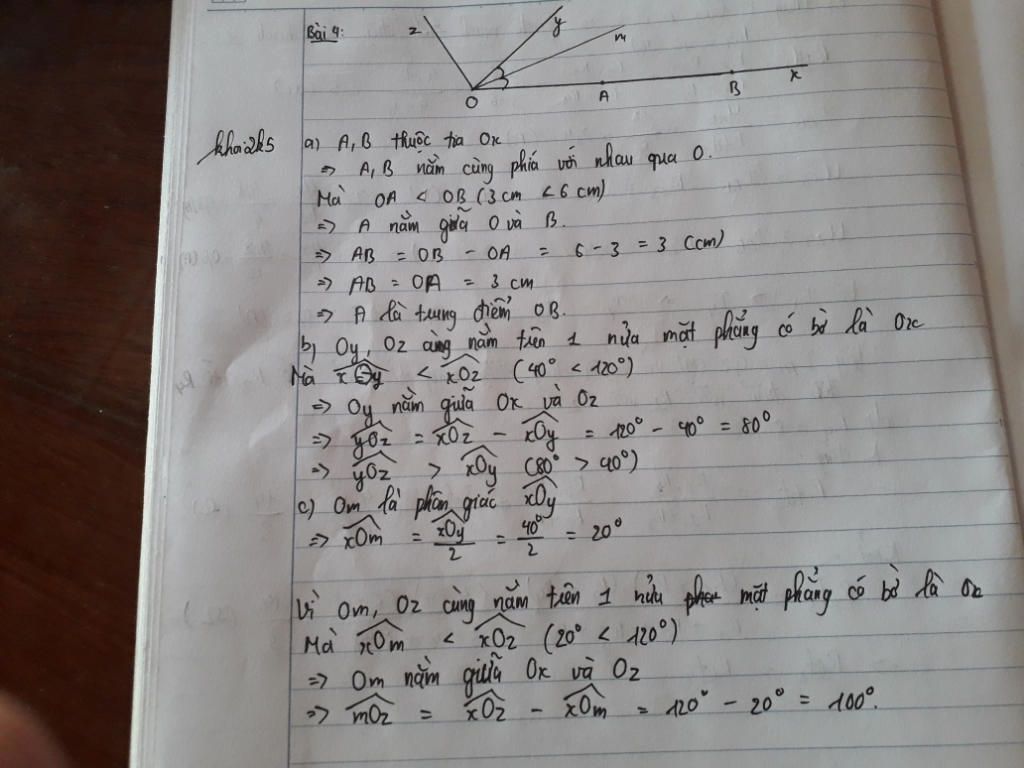 Bài 4:
z
y
m
O
A
B
x
khai2k5
a) A, B thuộc tia Ox
=> A, B nằm cùng phía với nhau qua O.
Mà OA < OB (3 cm < 6 cm)
=> A nằm giữa O và B.
=> AB = OB - OA = 6 - 3 = 3 (cm)
=> AB = OA = 3 cm
=> A là trung điểm OB.
b) Oy, Oz cùng nằm trên 1 nửa mặt phẳng có bờ là Ox
Mà xOy < xOz (40° < 120°)
=> Oy nằm giữa Ox và Oz
=> yOz = xOz - xOy = 120° - 40° = 80°
=> yOz > xOy (80° > 40°)
c) Om là phân giác xOy
=> xOm = xOy/2 = 40°/2 = 20°
Vì Om, Oz cùng nằm trên 1 nửa mặt phẳng có bờ là Ox
Mà xOm < xOz (20° < 120°)
=> Om nằm giữa Ox và Oz
=> mOz = xOz - xOm = 120° - 20° = 100°.